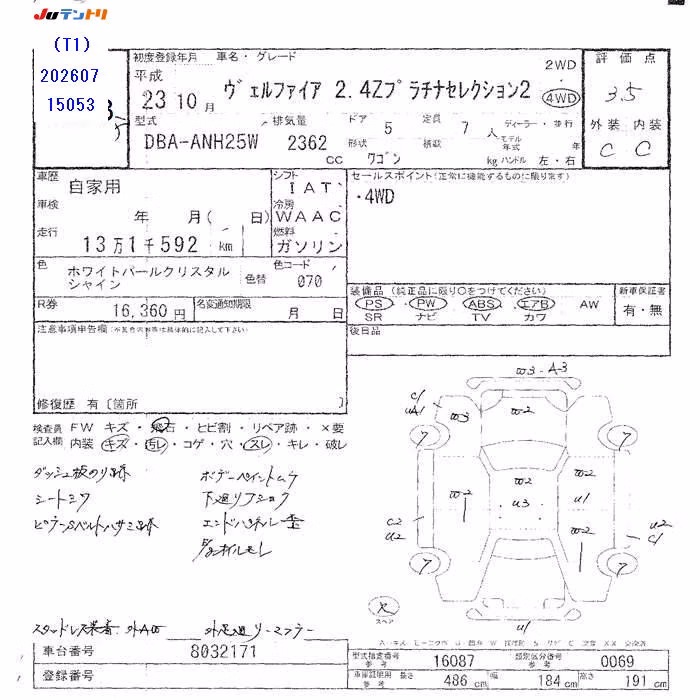 JUテントリ
(T1)
202607
15053
初度登録年月 車名・グレード
平成
23 10月 ヴェルファイア 2.4Zプラチナセレクション2
2WD
4WD
評価点
3.5
型式 排気量 ドア 定員 ディーラー・並行
DBA-ANH25W 2362 5 7人
cc 形状 ワゴン 積載 kg モデル年式 年
ハンドル 左・右
外装 内装
C C
車歴 自家用 シフト IAT
セールスポイント(正常に機能するものに限ります)
・4WD
車検 年 月( 日) 冷房 WAAC
走行 13万1千592 km 燃料 ガソリン
色 ホワイトパールクリスタルシャイン 色替 色コード 070
装備品 (純正品に限り○をつけてください) 新車保証書
PS・PW・ABS・エアB・AW 有・無
SR ナビ TV カワ
R券 16,360円 名変通知期限 月 日
後日品
注意事項申告欄
修復歴 有〔箇所 〕
検査員記入欄 FW キズ・飛石・ヒビ割・リペア跡・×要
内装 キズ・汚レ・コゲ・穴・スレ・キレ・破レ
ダッシュ板のり跡 ボデーペイントムラ
シートシワ 下廻りフショク
エンドパネル
オイルモレ
スタッドレス装着 外品 リーマフラー
W3・A-3
W3 W-2
7 7
W-2 W-2
W-2 U3 U1
W-2
C2
U2
U2
C1
7 7
スペア
U1
車台番号 8032171
登録番号
型式指定番号 参考 16087 類別区分番号 参考 0069
車庫証明用 参考 長さ 486 cm 幅 184 cm 高さ 191 cm